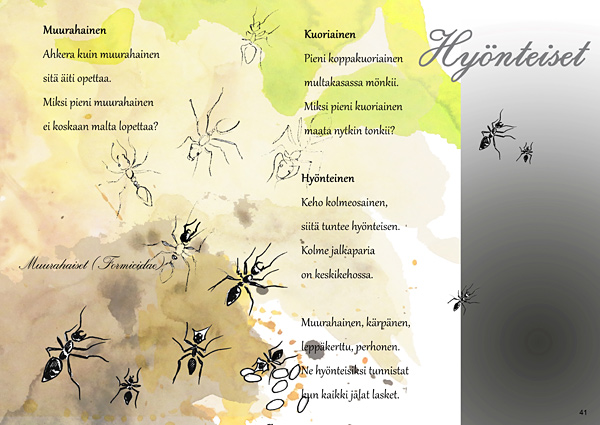 Hyönteiset
Muurahainen
Ahkera kuin muurahainen
sitä äiti opettaa.
Miksi pieni muurahainen
ei koskaan malta lopettaa?
Kuoriainen
Pieni koppakuoriainen
multakasassa mönkii.
Miksi pieni kuoriainen
maata nytkin tonkii?
Hyönteinen
Keho kolmeosainen,
siitä tuntee hyönteisen.
Kolme jalkaparia
on keskikehossa.
Muurahainen, kärpänen,
leppäkerttu, perhonen.
Ne hyönteisiksi tunnistat
kun kaikki jalat lasket.
Muurahaiset (Formicidae)
41